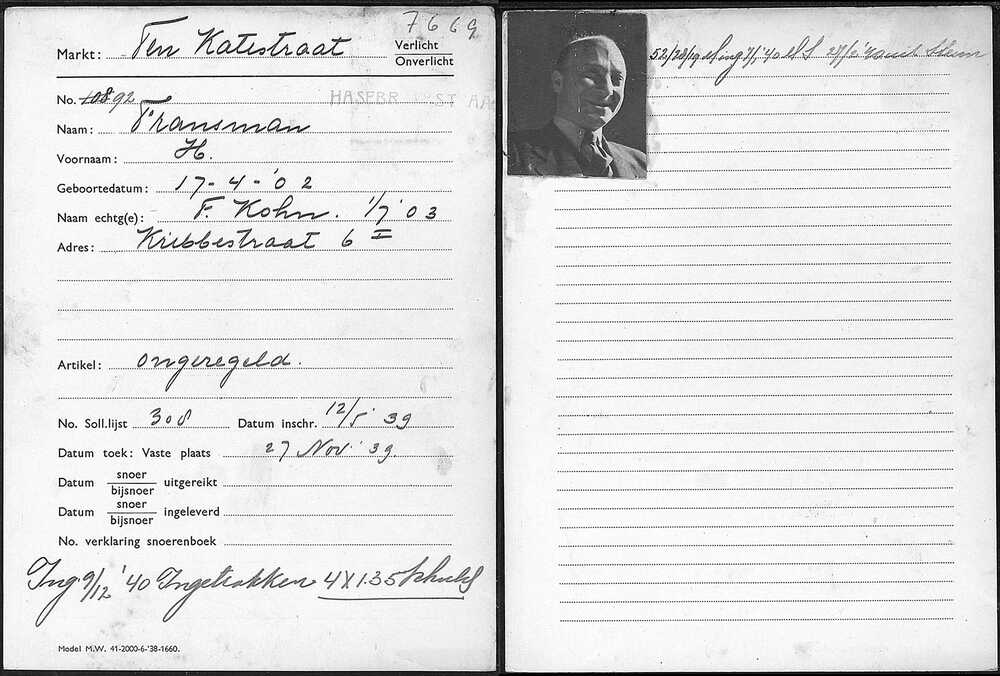 7669
Markt: Ten Katestraat
Verlicht
Onverlicht
No. 10892
HASEBR ST AA
Naam: Fransman
Voornaam: H.
Geboortedatum: 17-4-'02
Naam echtg(e): F. Kohn. 1/7'03
Adres: Kribbestraat 6 I
Artikel: ongeregeld.
No. Soll.lijst 308 Datum inschr. 12/5 39
Datum toek: Vaste plaats 27 Nov 39.
Datum snoer uitgereikt
bijsnoer
Datum snoer ingeleverd
bijsnoer
No. verklaring snoerenboek
Ing. 9/12 '40 Ingetrokken 4 X 1.35 schuld
Model M.W. 41-2000-6-'38-1660.
52/28/19 '40